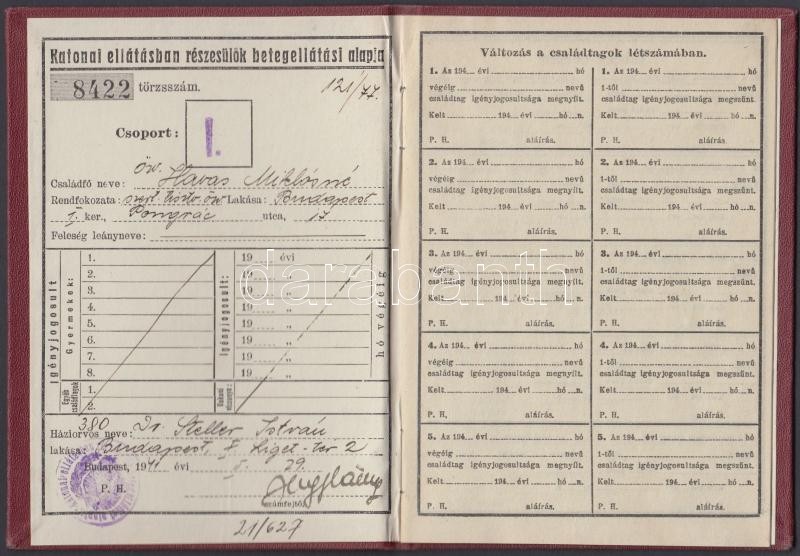 Katonai ellátásban részesülők betegellátási alapja
8422 törzsszám. 121/44.
Csoport: I.
öv. Havas Miklósné
Családfő neve:
Rendfokozata: Lakása: Budapest
I. ker., Pongrác utca, 17
Feleség leányneve:
Igényjogosult
Gyermekek:
1.
2.
3.
4.
5.
6.
7.
8.
Egyéb családtagok
1.
2.
Igényjogosult:
19 évi
19 "
19 "
19 "
19 "
19 "
19 "
19 "
hó végéig
380 Dr. Steller István
Háziorvos neve:
lakása: Budapest, I. Liget-tér 2
Budapest, 1941 évi 29.
P. H.
számfejtő
21/627
Változás a családtagok létszámában.
1. Az 194 évi hó
végéig nevű
családtag igényjogosultsága megnyílt.
Kelt 194 hó n.
P. H. aláírás.
1. Az 194 évi hó
1-től nevű
családtag igényjogosultsága megszűnt.
Kelt 194 hó n.
P. H. aláírás.
2. Az 194 évi hó
végéig nevű
családtag igényjogosultsága megnyílt.
Kelt 194 hó n.
P. H. aláírás.
2. Az 194 évi hó
1-től nevű
családtag igényjogosultsága megszűnt.
Kelt 194 hó n.
P. H. aláírás.
3. Az 194 évi hó
végéig nevű
családtag igényjogosultsága megnyílt.
Kelt 194 hó n.
P. H. aláírás.
3. Az 194 évi hó
1-től nevű
családtag igényjogosultsága megszűnt.
Kelt 194 hó n.
P. H. aláírás.
4. Az 194 évi hó
végéig nevű
családtag igényjogosultsága megnyílt.
Kelt 194 hó n.
P. H. aláírás.
4. Az 194 évi hó
1-től nevű
családtag igényjogosultsága megszűnt.
Kelt 194 hó n.
P. H. aláírás.
5. Az 194 évi hó
végéig nevű
családtag igényjogosultsága megnyílt.
Kelt 194 hó n.
P. H. aláírás.
5. Az 194 évi hó
1-től nevű
családtag igényjogosultsága megszűnt.
Kelt 194 hó n.
P. H. aláírás.
darabanth